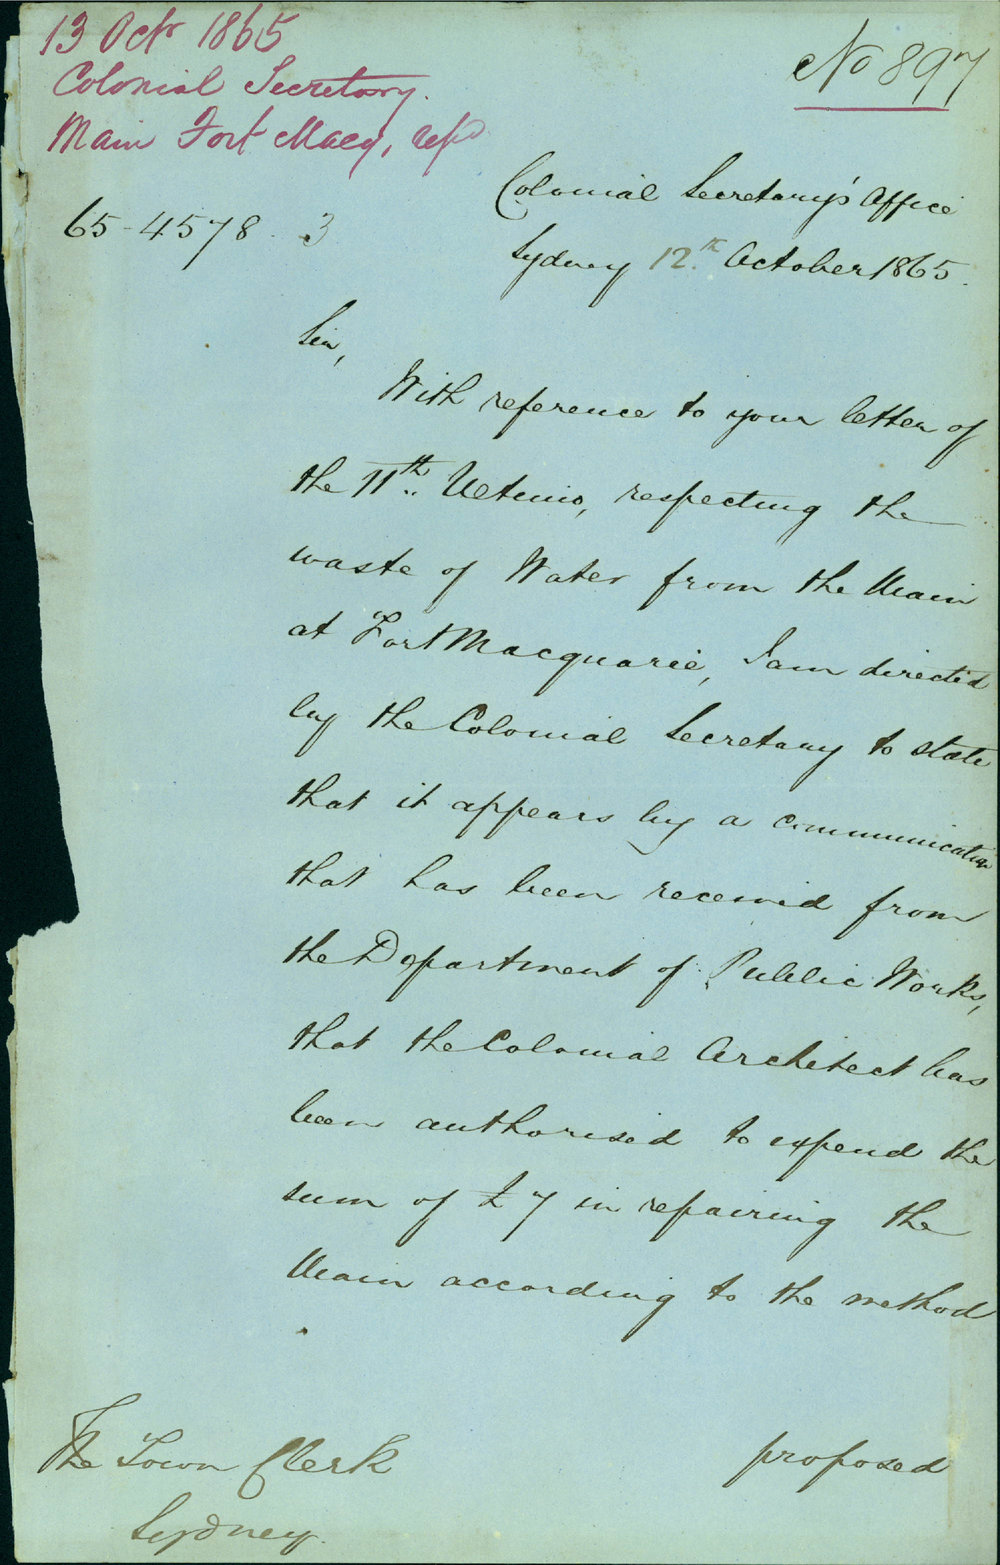 13 Octr 1865
Colonial Secretary.
Main Fort Macq, repd
No 897
65-4578. 3
Colonial Secretary's Office
Sydney 12th October 1865.
Sir,
With reference to your letter of
the 11th Ultimo, respecting the
waste of Water from the Main
at Fort Macquarie, I am directed
by the Colonial Secretary to state
that it appears by a communication
that has been received from
the Department of Public Works,
that the Colonial Architect has
been authorised to expend the
sum of £7 in repairing the
Main according to the method
proposed
The Town Clerk
Sydney.